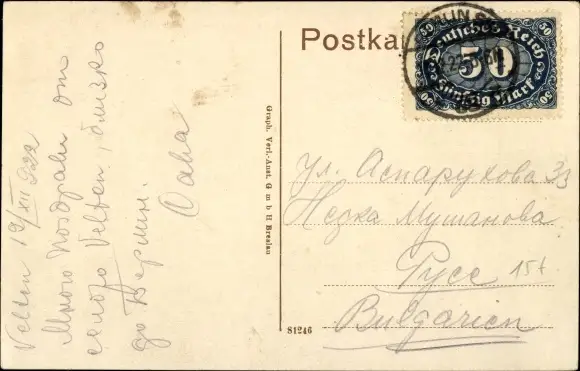 Postka
50 50
Deutsches Reich
50
fünfzig Mark
50 50
Velten 19/XII 922
Много поздрави от
селото Velten, близко
до Берлин.
Сава
Graph. Verl.-Anst. G m b H Breslau
S1246
Ул. Аспарухова 33
Недка Мушанова
Русе
Bulgarien